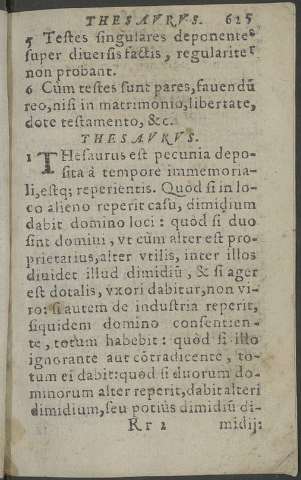 THESAVRVS. 625
5 Testes singulares deponentes
super diuersis factis, regulariter
non probant.
6 Cùm testes sunt pares, fauendū
reo, nisi in matrimonio, libertate,
dote testamento, &c.
THESAVRVS.
1 THesaurus est pecunia depo-
sita à tempore immemoria-
li, estq; reperientis. Quòd si in lo-
co alieno reperit casu, dimidium
dabit domino loci: quòd si duo
sint domini, vt cùm alter est pro-
prietarius, alter vtilis, inter illos
diuidet illud dimidiū, & si ager
est dotalis, vxori dabitur, non vi-
ro: si autem de industria reperit,
siquidem domino consentien-
te, totum habebit: quòd si illo
ignorante aut cōtradicente, to-
tum ei dabit: quòd si duorum do-
minorum alter reperit, dabit alteri
dimidium, seu potiùs dimidiū di-
Rr 2 midij: